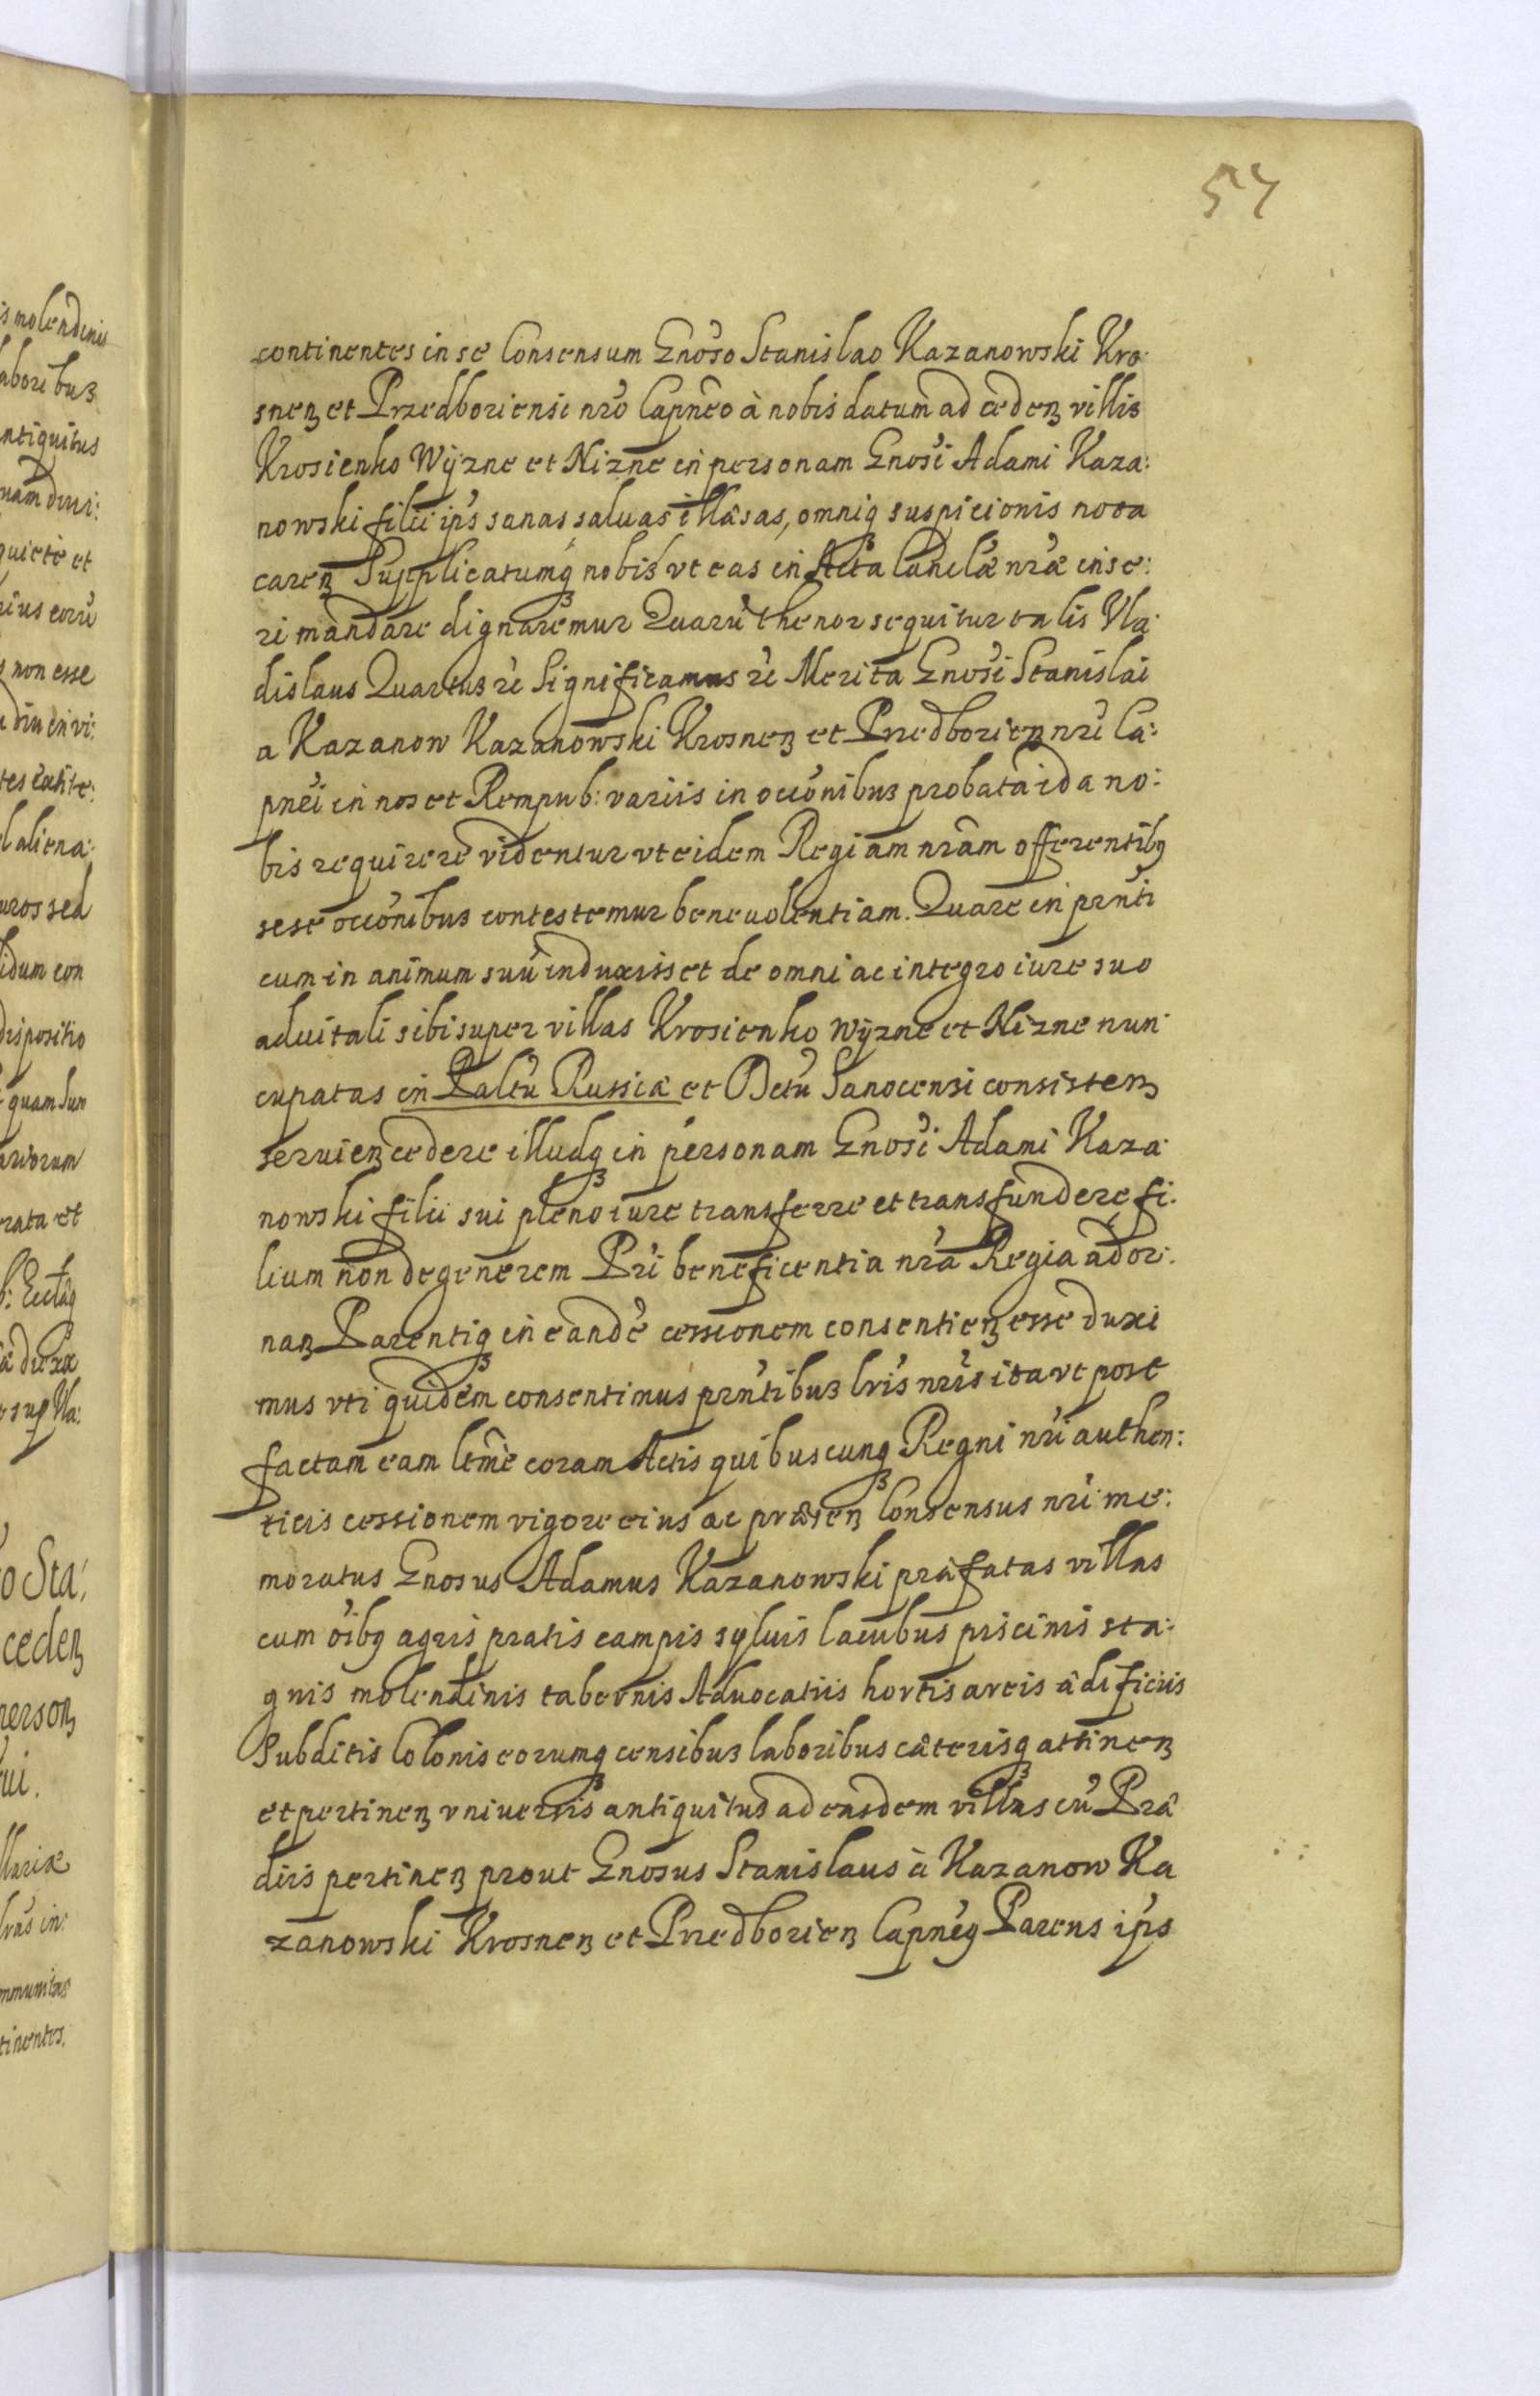 57
continentes in se Consensum Gnoso Stanislao Kazanowski Kro:
snen et Przedboriensi nro Capneo à nobis datum ad ceden villis
Krosienko Wyzne et Nizne in personam Gnosi Adami Kaza:
nowski filii ips sanas saluas illæsas, omniq suspicionis nota
caren Supplicatumq nobis vt eas in Acta Canclæ nræ inse:
ri mandare dignaremur Quarū thenor sequitur talis Vla:
dislaus Quartus rē Significamus rē Merita Gnosi Stanislai
a Kazanow Kazanowski Krosnen et Przedborien nri Ca:
pnei in nos et Rempub: variis in occōnibus probata id a no:
bis requirere videntur vt eidem Regiam nram offerentibq
sese occōnibus contestemur beneuolentiam. Quare in prnti
cum in animum suū induxisset de omni ac integro iure suo
aduitali sibi super villas Krosienko Wyzne et Nizne nun:
cupatas in Paltū Russiæ et Dctū Sanocensi consisten
seruien cedere illudq in personam Gnosi Adami Kaza:
nowski filii sui pleno iure transferre et transfundere fi:
lium non degenerem Pri beneficentia nra Regia ador:
nan Parentiq in eandē cessionem consentien esse duxi
mus vti quidem consentimus prntibus lris nris ita vt post
factam eam ltmē coram Actis quibuscunq Regni nri authen:
ticis cessionem vigore eius ac præsen Consensus nri me:
moratus Gnosus Adamus Kazanowski præfatas villas
cum oibq agris pratis campis syluis lacubus piscinis sta:
gnis molendinis tabernis Aduocatiis hortis areis ædificiis
Subditis Colonis eorumq censibus laboribus cæterisq attinen
et pertinen vniuersis antiquitus ad easdem villas cū Præ
diis pertinen prout Gnosus Stanislaus à Kazanow Ka
zanowski Krosnen et Przedborien Capneq Parens ips